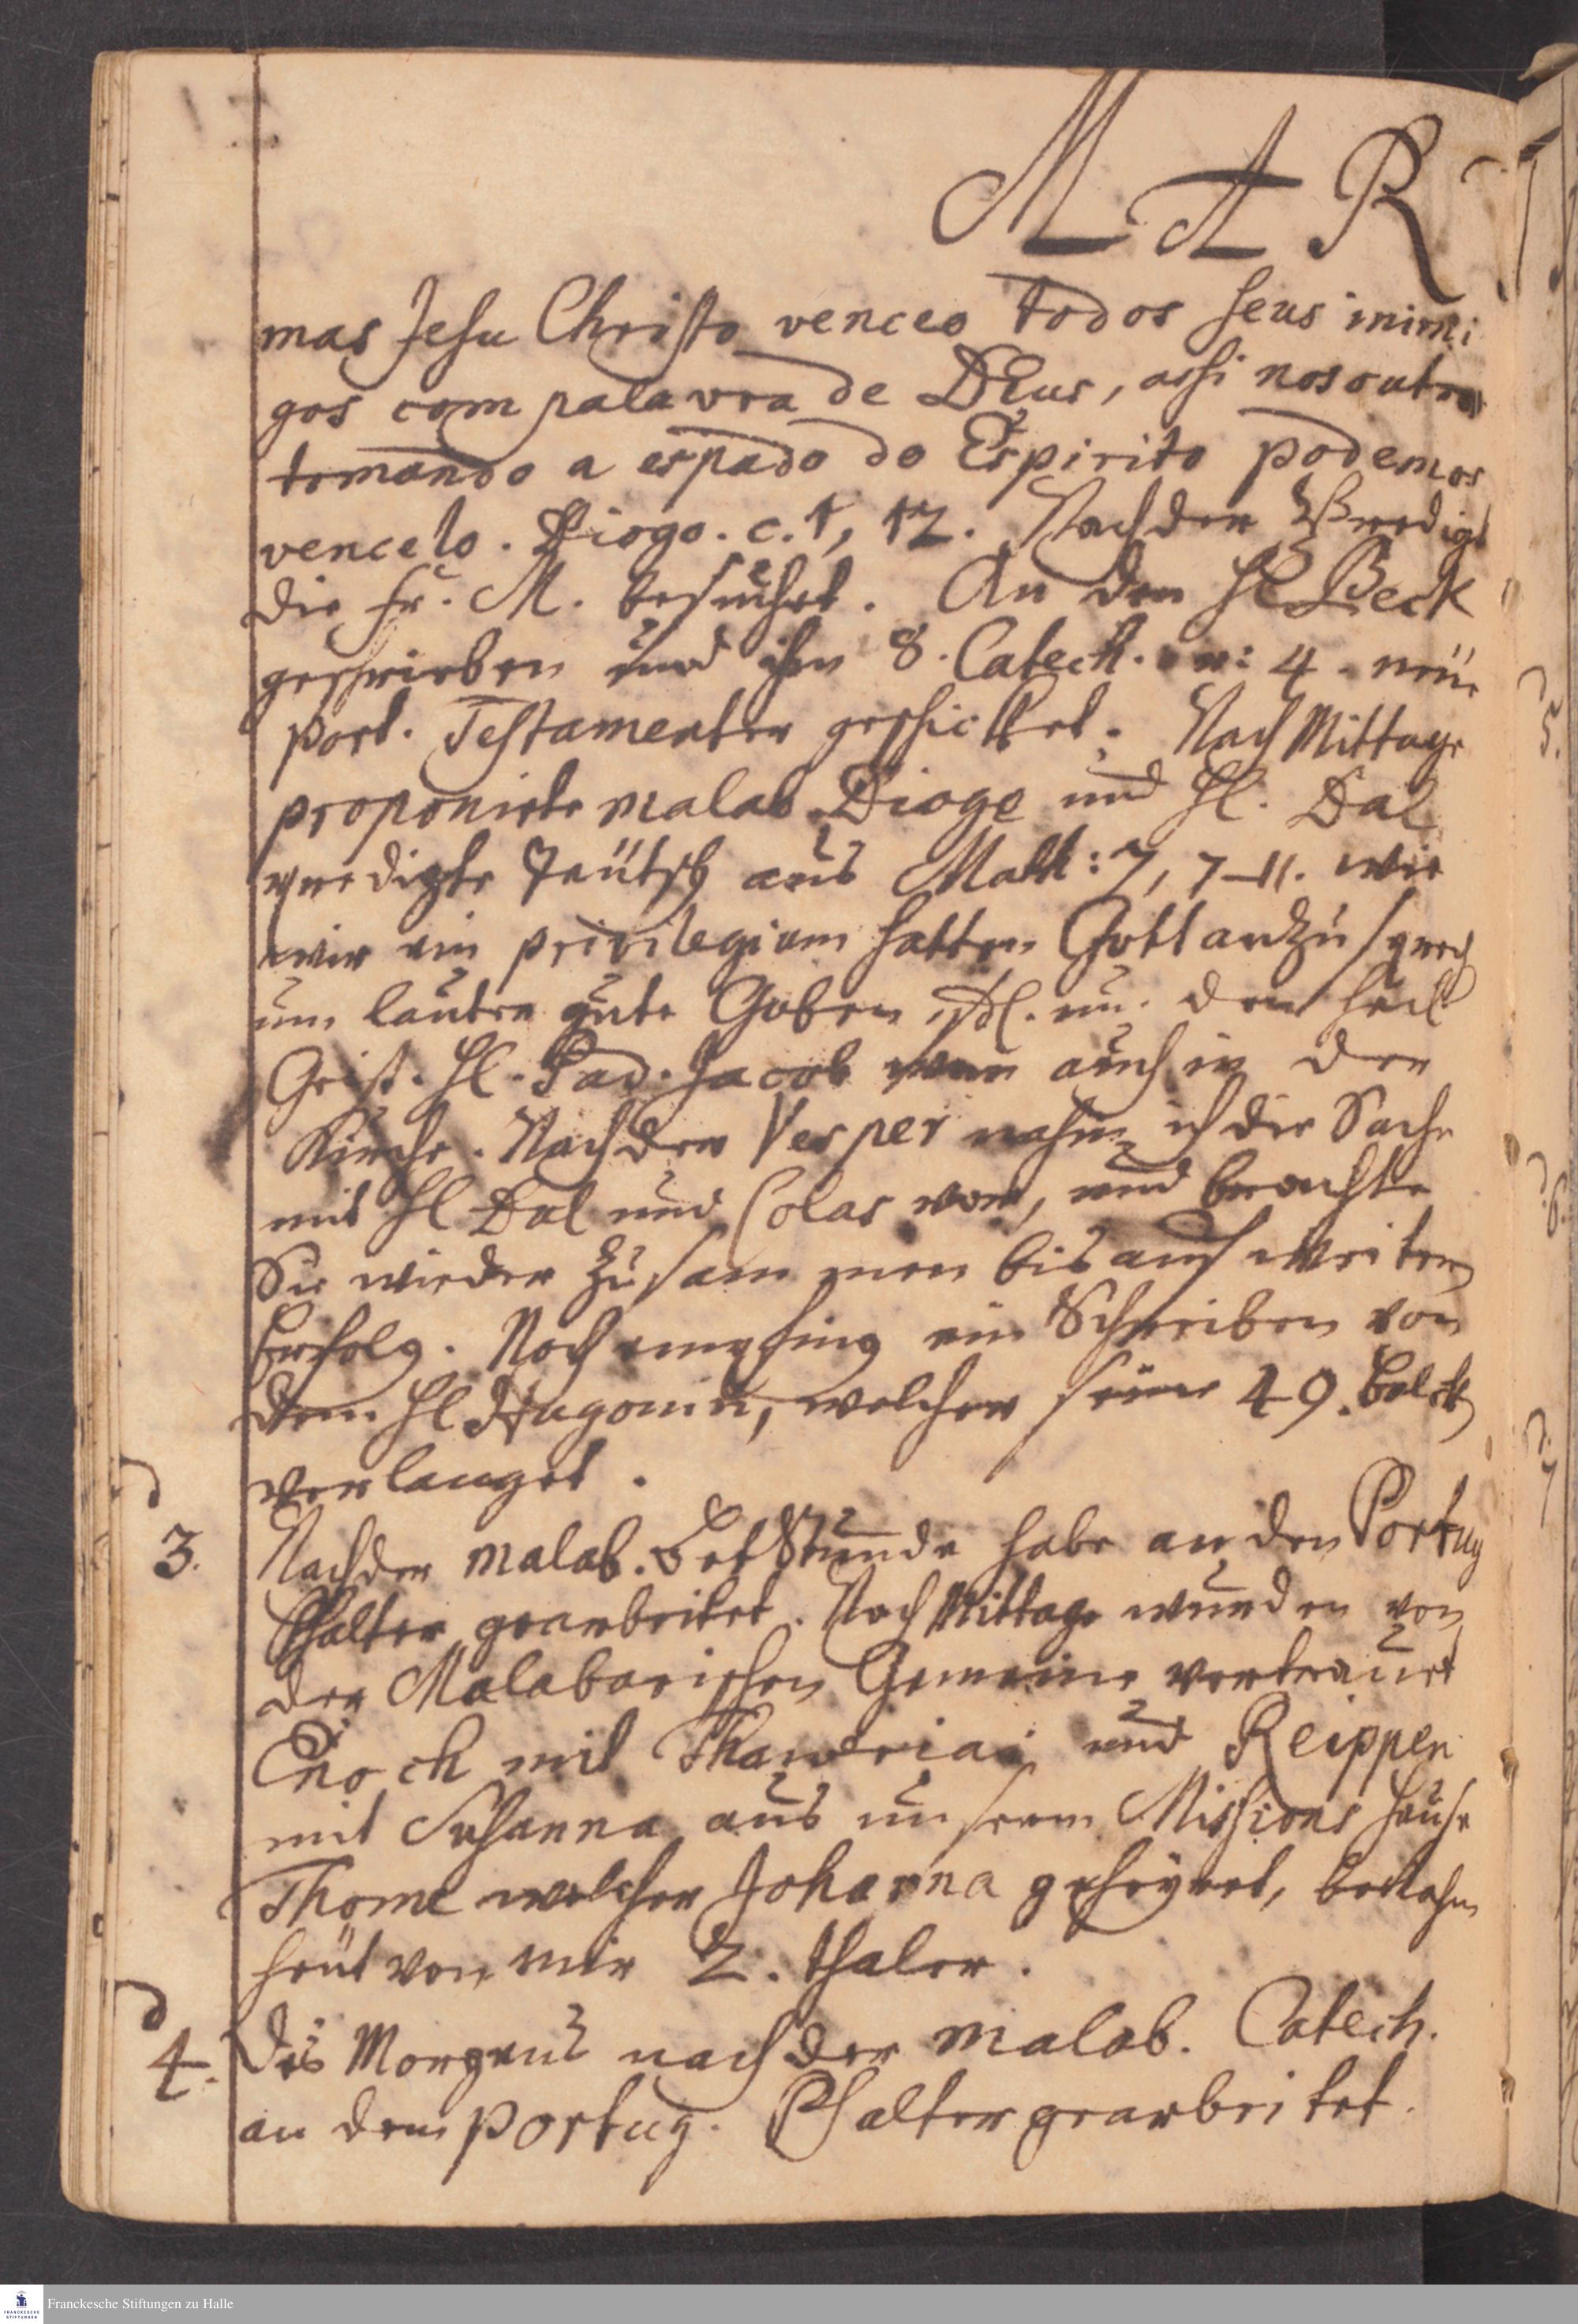 MAR
mas Jesu Christo venceo todos seus inimi
gos com palavra de DEus, assi nos outros
tomando a espado do Espirito podemos
vencelo. Diogo. c. 1, 12. Nach der Predigt
die Fr. M. besuchet. An den Hl Beck
geschrieben und ihm 8. Catech. n: 4. neüe
port. Testamenter geschicket. Nach Mittage
proponirte malab. Diogo und Hl. Dal
predigte Teütsch aus Matth: 7, 7-11. wie
wir ein privilegium hatten Gott anzusprech
um lauter gute Gaben, um den heil
Geist. Hl. Pad. Jacob war auch in der
Kirche. Nach der Vesper nahm ich die Sache
mit Hl Dal und Colas vor, und brachte
Sie wieder zusammen bis auf weitern
Erfolg. Noch empfing ein Schreiben von
dem Hl Hugonin, welcher seine 49.
verlanget.
3. Nach der malab. Betstunde habe an den Portug
Psalter gearbeitet. Nach Mittage wurden von
der Malabarischen Gemeine vertrauet
Enoch mit und
mit Susanna aus unserm Missions Hause
Thome welcher Johanna geheyret, bekahm
heüt von mir 2. thaler.
4. Des Morgens nach der malab. Catech.
an dem portug. Psalter gearbeitet.
5.
6.
7
Franckesche Stiftungen zu Halle